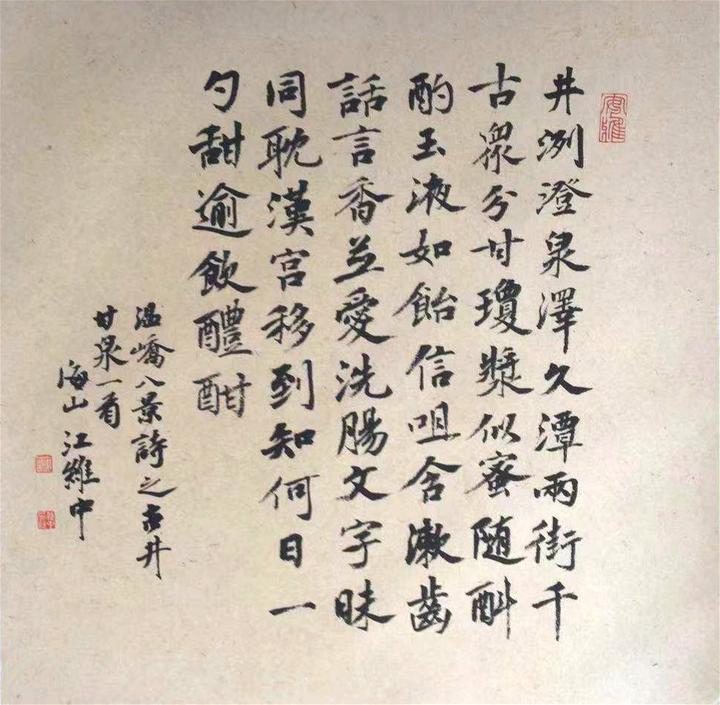 井洌澄泉澤久潭兩街千
古眾分甘瓊漿似蜜随斟
酌玉液如飴信咀含漱齒
話言香並愛洗腸文字昧
同耽漢宮移到知何日一
勺甜逾飲醴酣
温嶠八景詩之古井
甘泉一首
海山江維中